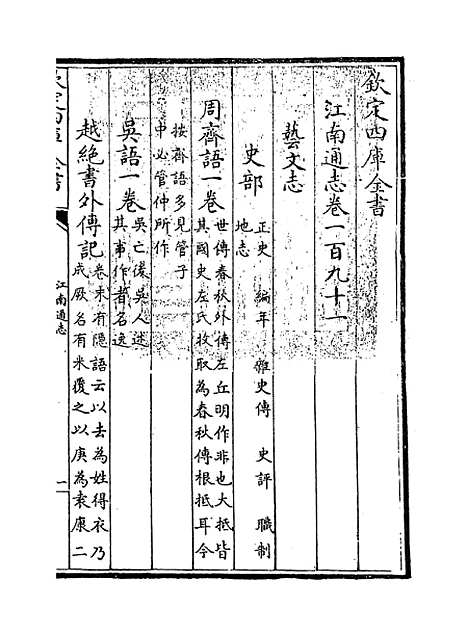 欽定四庫全書
江南通志卷一百九十一
藝文志
史部 正史 編年 雜史傳 史評 職制
地志
周齊語一卷 世傳春秋外傳左丘明作非也大抵皆
其國史左氏收取為春秋傳根抵耳今
按齊語多見管子
中必管仲所作
吳語一卷 吳亡後吳人述
其事作者名逸
越絶書外傳記 卷末有隠語云以去為姓得衣乃
成厥名有米覆之以庚為袁康二
欽定四庫全書
江南通志
一